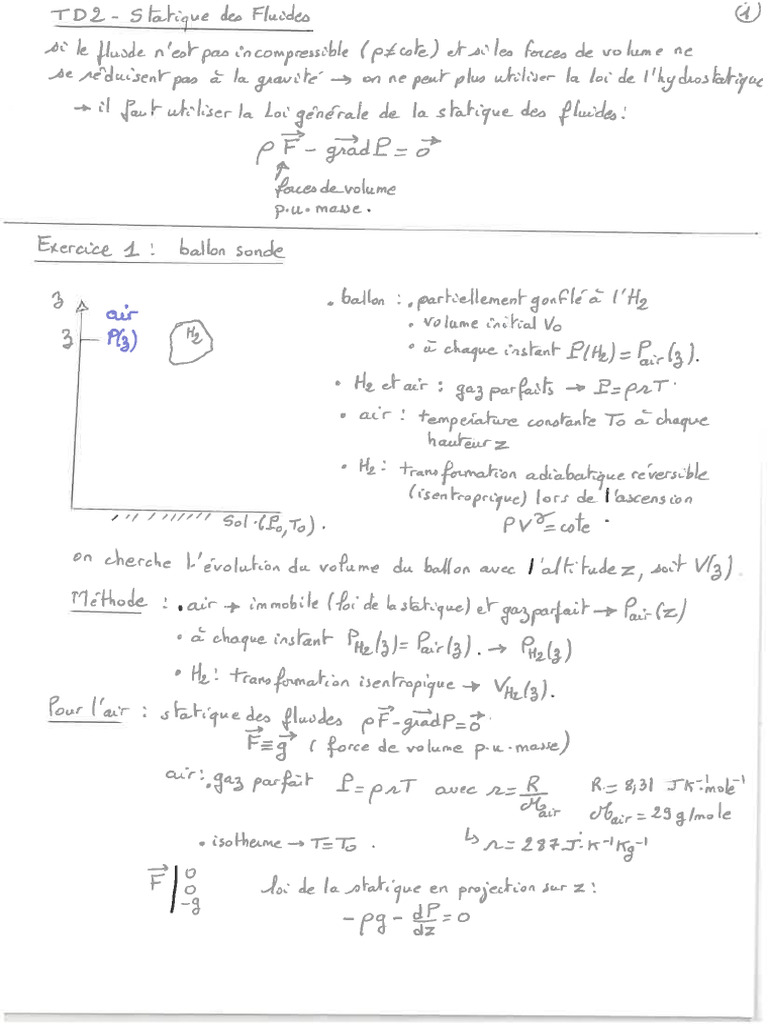 TD2 - Statique des Fluides
①
si le fluide n'est pas incompressible (ρ≠cote) et si les forces de volume ne
se réduisent pas à la gravité → on ne peut plus utiliser la loi de l'hydrostatique
→ il faut utiliser la Loi générale de la statique des fluides:
ρ F⃗ - grad⃗ P = 0⃗
forces de volume
p.u.masse.
Exercice 1 : ballon sonde
z
air
z
P(z)
H2
Sol.(P0,T0).
. ballon : . partiellement gonflé à l'H2
• volume initial V0
• à chaque instant P(H2) = Pair(z).
• H2 et air : gaz parfaits → P=ρrT.
• air : température constante T0 à chaque
hauteur z
• H2 : transformation adiabatique réversible
(isentroprique) lors de l'ascension
PV^γ = cote .
on cherche l'évolution du volume du ballon avec l'altitude z, soit V(z).
Méthode : . air → immobile (loi de la statique) et gaz parfait → Pair(z)
• à chaque instant PH2(z) = Pair(z). → PH2(z)
• H2 : transformation isentropique → VH2(z).
Pour l'air : statique des fluides ρF⃗ - grad⃗P = 0⃗
F⃗ ≡ g⃗ ( force de volume p.u.masse)
air : . gaz parfait P=ρrT avec r = R/Mair R = 8,31 JK⁻¹mole⁻¹
Mair = 29 g/mole
• isotherme → T=T0 . ↳ r = 287 J.K⁻¹Kg⁻¹
F⃗ | 0
0
-g
loi de la statique en projection sur z :
-ρg - dP/dz = 0